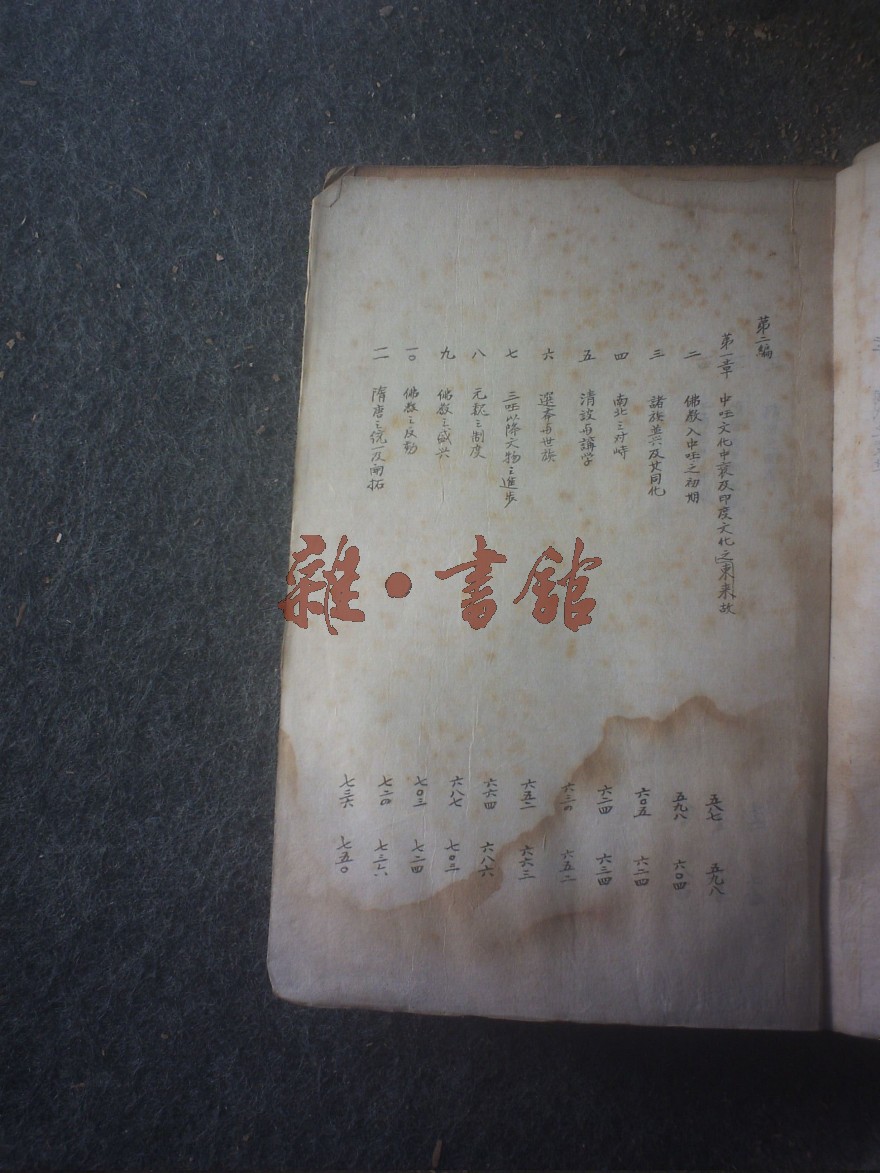 第二編
第一章 中吐文化中衰及印度文化之東来故 五八七 五九八
二 佛教入中吐之初期 五九八 六〇四
三 諸族並兴及其同化 六〇五 六二四
四 南北之对峙 六二四 六三四
五 清談与講学 六三〇 六五二
六 選奉与世族 六五二 六六三
七 三吐以降文物之進步 六六四 六八六
八 元魏之制度 六八七 七〇三
九 佛教之盛兴 七〇三 七二四
一〇 佛教之反動 七二〇 七三六
一一 隋唐之統一及開拓 七三六 七五〇
雜·書館